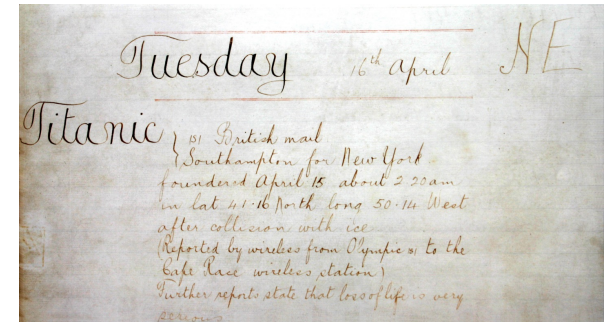 Tuesday 16th April NE
Titanic } (s) British mail
Southampton for New York
foundered April 15 about 2·20am
in lat 41·16 North long 50·14 West
after collision with ice
(Reported by wireless from Olympic (s) to the
Cape Race wireless station)
Further reports state that loss of life is very
serious